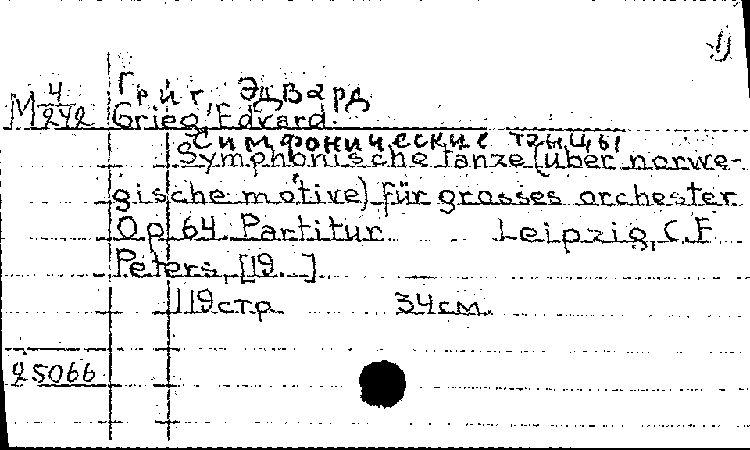 Григ, Эдвард
М 4/242 Grieg, Edvard.
Симфонические танцы
Symphonische Tänze (über norwe-
gische motive) für grosses orchester
Op. 64. Partitur. Leipzig, C.F.
Peters, [19. ]
119 стр. 34 см.
25066